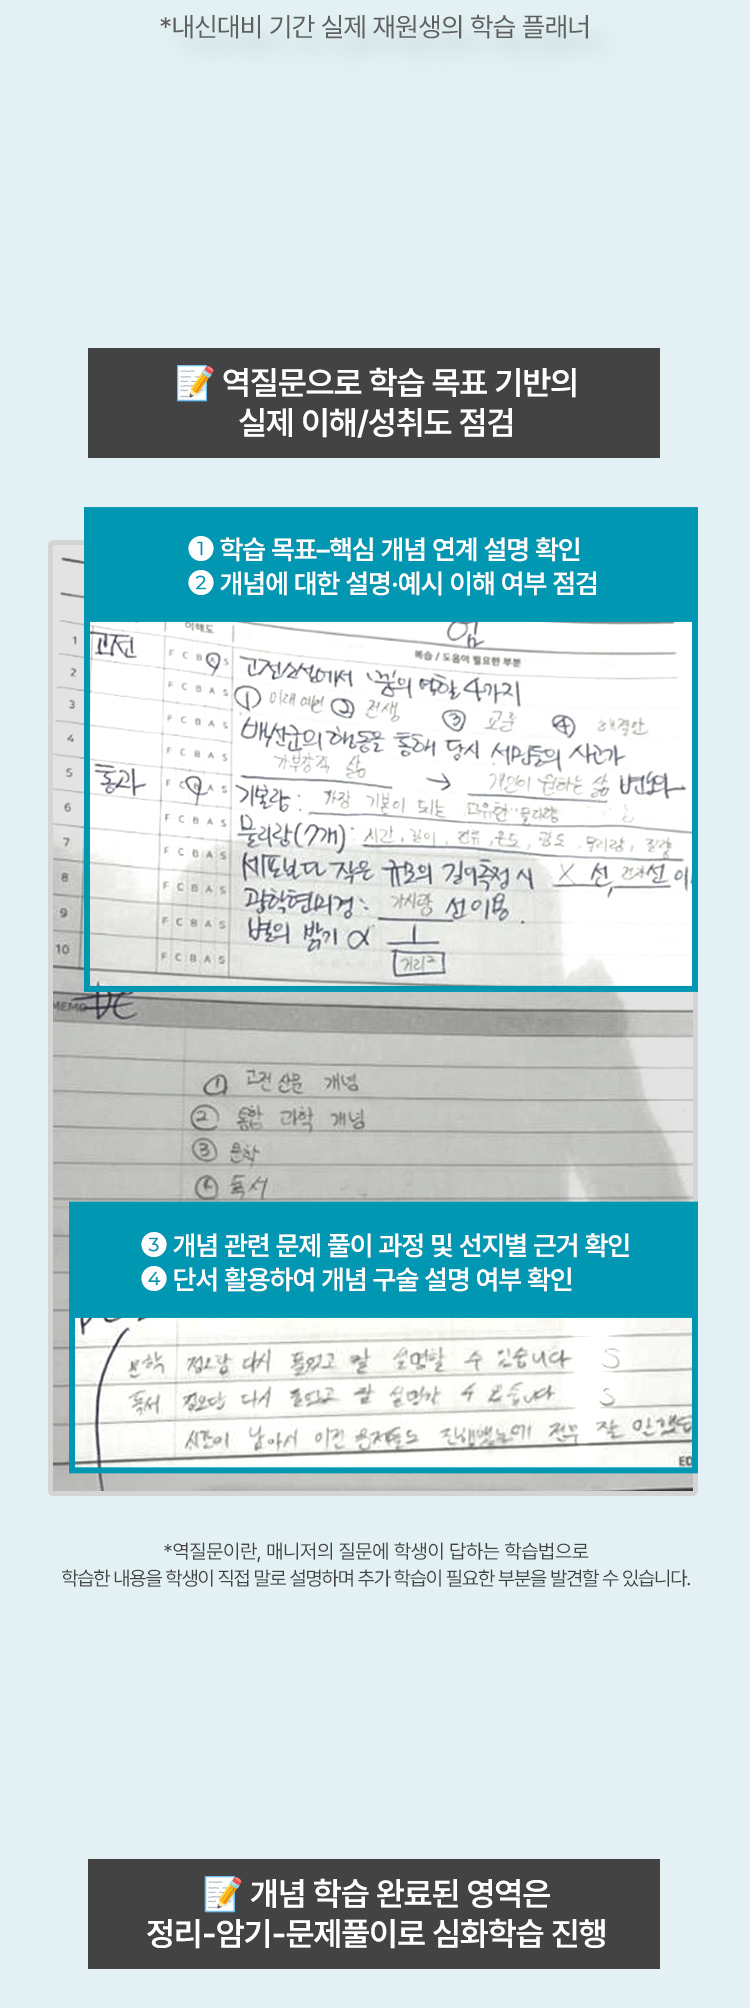 *내신대비 기간 실제 재원생의 학습 플래너
📝 역질문으로 학습 목표 기반의
실제 이해/성취도 점검
❶ 학습 목표–핵심 개념 연계 설명 확인
❷ 개념에 대한 설명·예시 이해 여부 점검
이해도
복습 / 도움이 필요한 부분
1 고전 F C B A S 고전소설에서 '꿈'의 역할 4가지
2 F C B A S ① 미래 예언 ② 전생 ③ 교훈 ④ 해결안
3 F C B A S 백산군의 행동을 통해 당시 서민들의 사고가
4 F C B A S 가부장적 삶 → 개인이 원하는 삶 변화
5 통과 F C B A S 기본량: 가장 기본이 되는 고유한 물리량
6 F C B A S 물리량(7개): 시간, 길이, 전류, 온도, 광도, 물리량, 질량
7 F C B A S 세포보다 작은 규모의 길이측정 시 X 선, 전자선 이
8 F C B A S 광학현미경: 가시광선 이용.
9 F C B A S 별의 밝기 ∝ 1
10 F C B A S 거리²
MEMO
① 고전 산문 개념
② 통합 과학 개념
③ 문학
④ 독서
❸ 개념 관련 문제 풀이 과정 및 선지별 근거 확인
❹ 단서 활용하여 개념 구술 설명 여부 확인
문학 다시 풀었고 잘 설명할 수 있습니다 S
독서 다시 풀었고 잘 S
시간이 남아서 이건 문제들도 전부 잘
*역질문이란, 매니저의 질문에 학생이 답하는 학습법으로
학습한 내용을 학생이 직접 말로 설명하며 추가 학습이 필요한 부분을 발견할 수 있습니다.
📝 개념 학습 완료된 영역은
정리-암기-문제풀이로 심화학습 진행